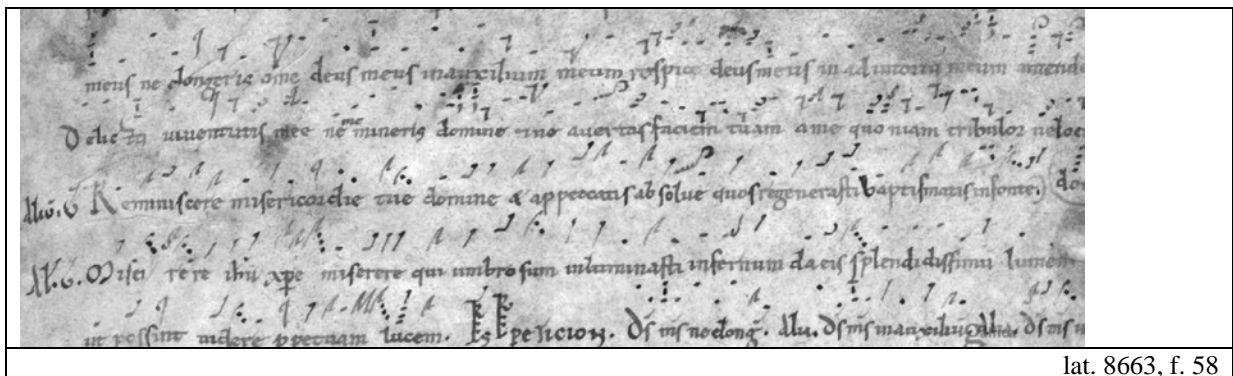 meus ne elongeris a me deus meus in auxilium meum respice deus meus in adiutoriu meum intende
Delicta iuuentutis mee ne memineris domine ne auertas faciem tuam a me quoniam tribulor ueloc
Aliu. V Reminiscere misericordie tue domine & a peccatis absolue quos regenerasti baptismatis in fonte. do
Al. V. Miserere ihu xpe miserere qui umbrosum inluminasti infernum da eis splendidissimu lumen
ut possint uidere ppetuam lucem. Ds ms ne elong. Aliu. Ds ms in auxiliu Aliu. Ds ms
lat. 8663, f. 58